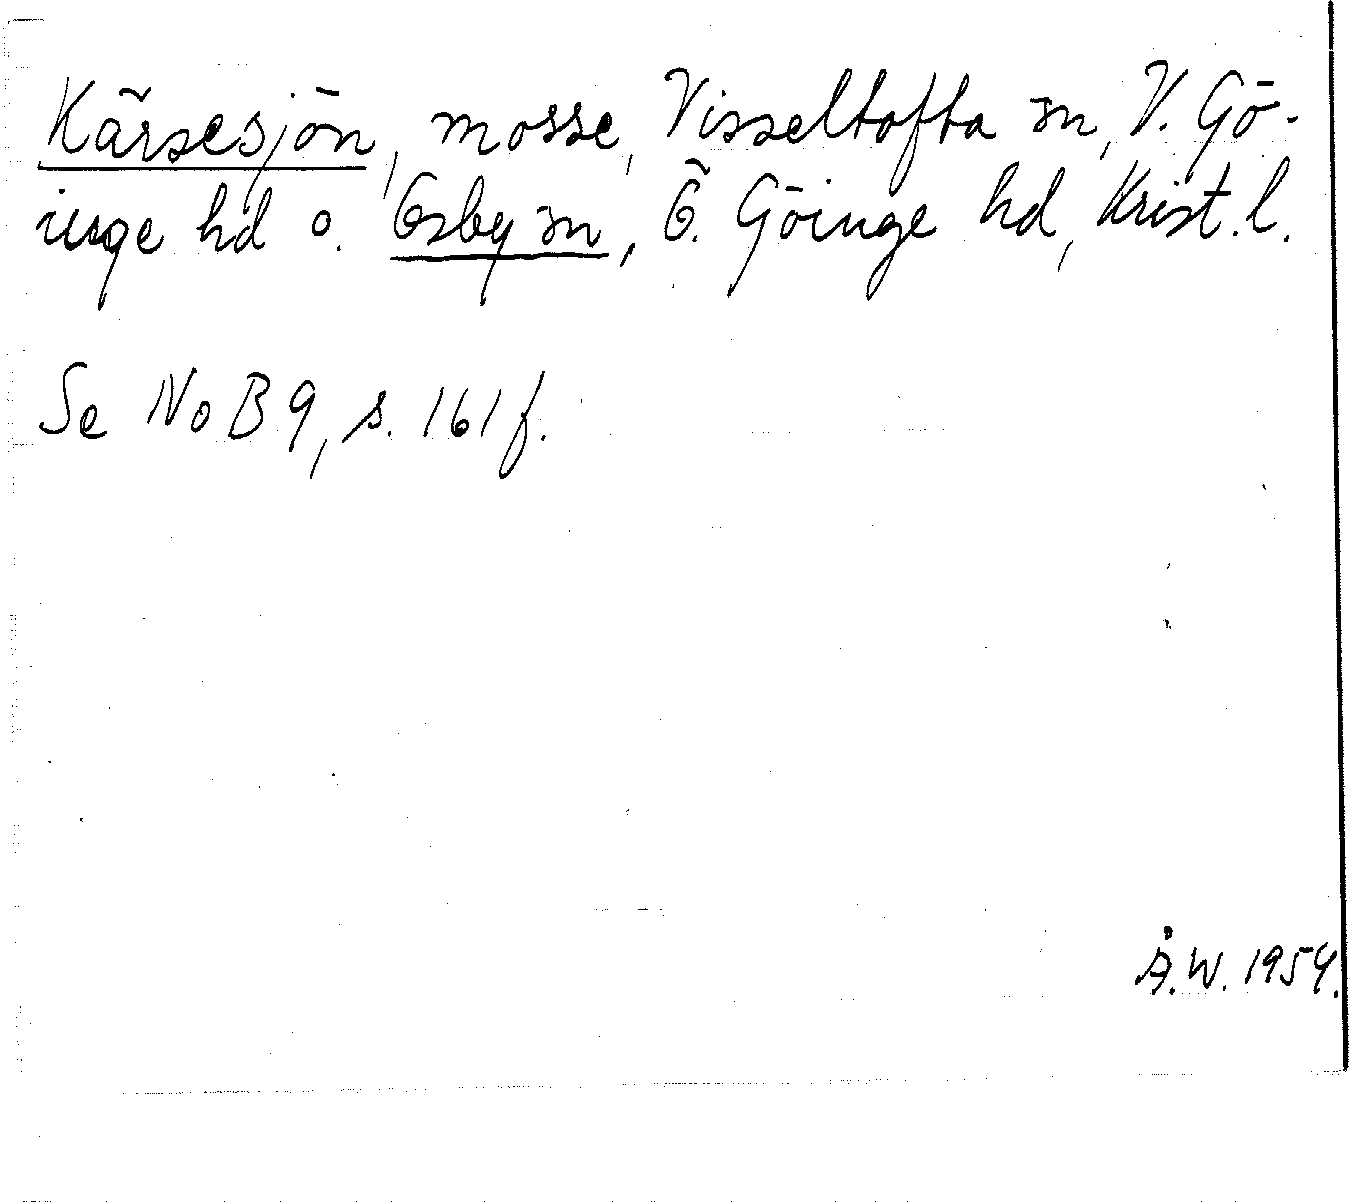 Kärsesjön, mosse, Visseltofta sn, V. Gö-
inge hd o. Osby sn, Ö. Göinge hd, Krist. l.
Se NoB 9, s. 161 f.
Å.W. 1954.